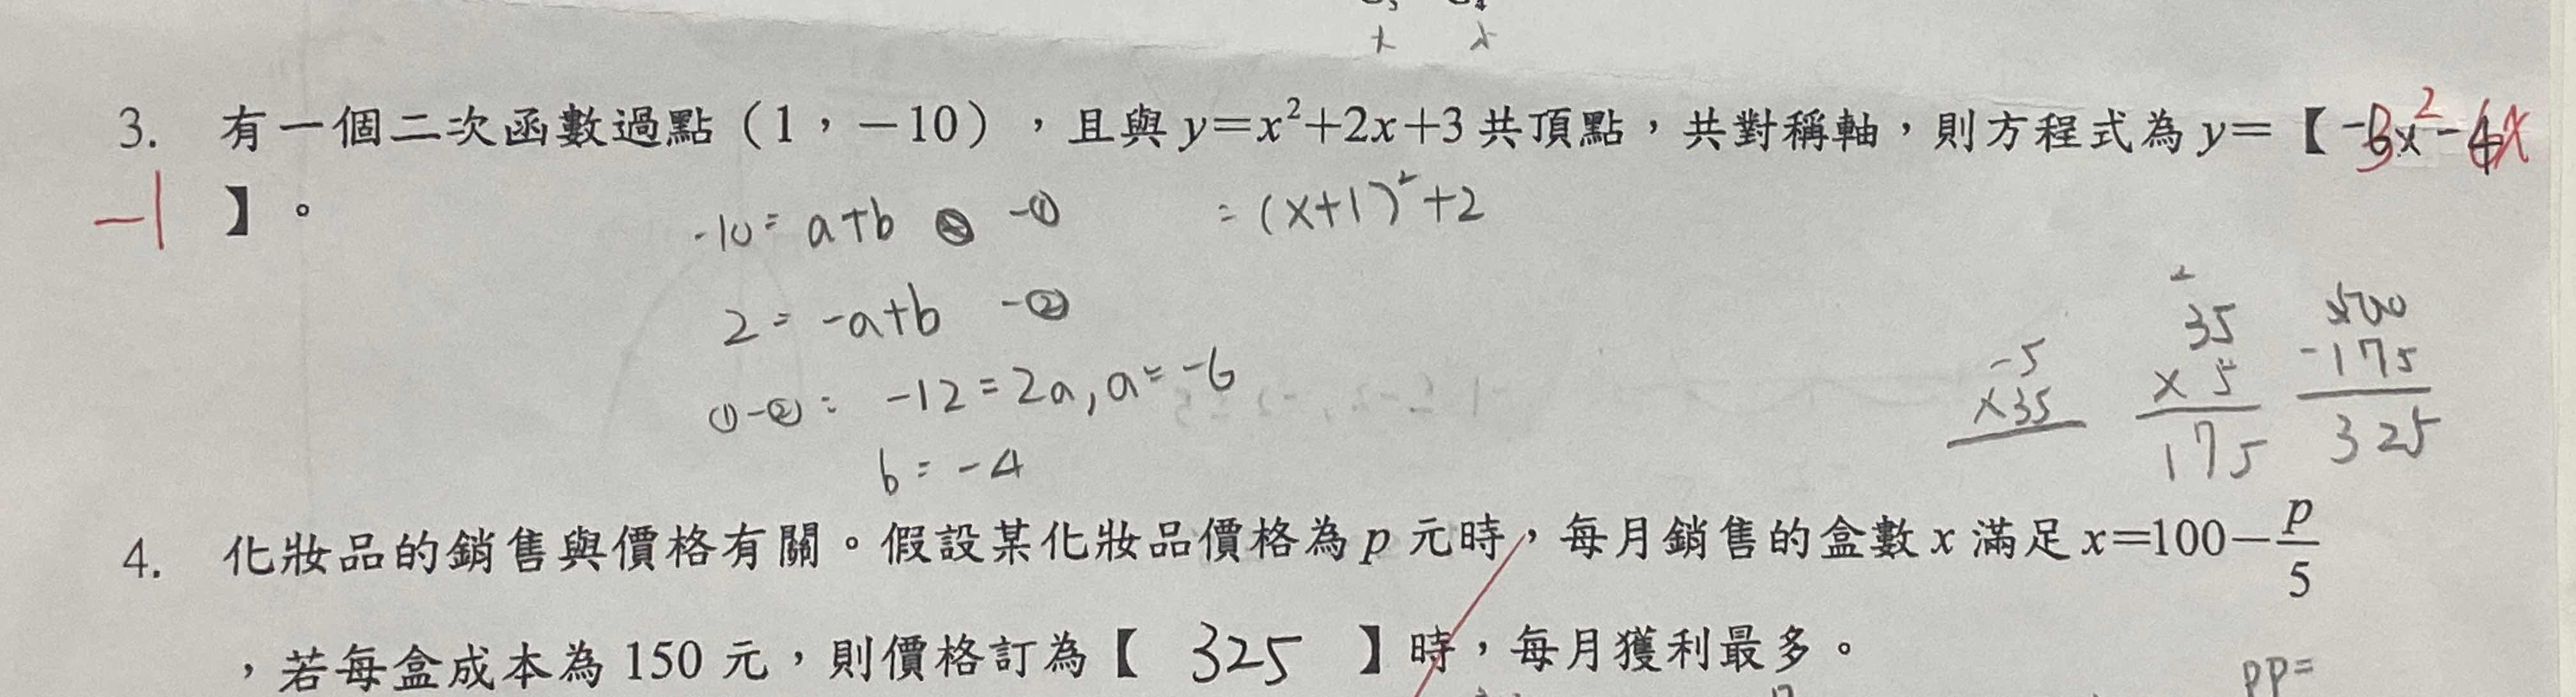 3. 有一個二次函數過點（1，－10），且與 y＝x²＋2x＋3 共頂點，共對稱軸，則方程式為 y＝【 -3x²-6x
-1 】。
-10 = a+b -①
= (x+1)²+2
2 = -a+b -②
①-②: -12 = 2a, a = -6
b = -4
-5
×35
2
35
× 5
175
500
-175
325
4. 化妝品的銷售與價格有關。假設某化妝品價格為 p 元時，每月銷售的盒數 x 滿足 x＝100－p/5
，若每盒成本為 150 元，則價格訂為【 325 】時，每月獲利最多。
PP=